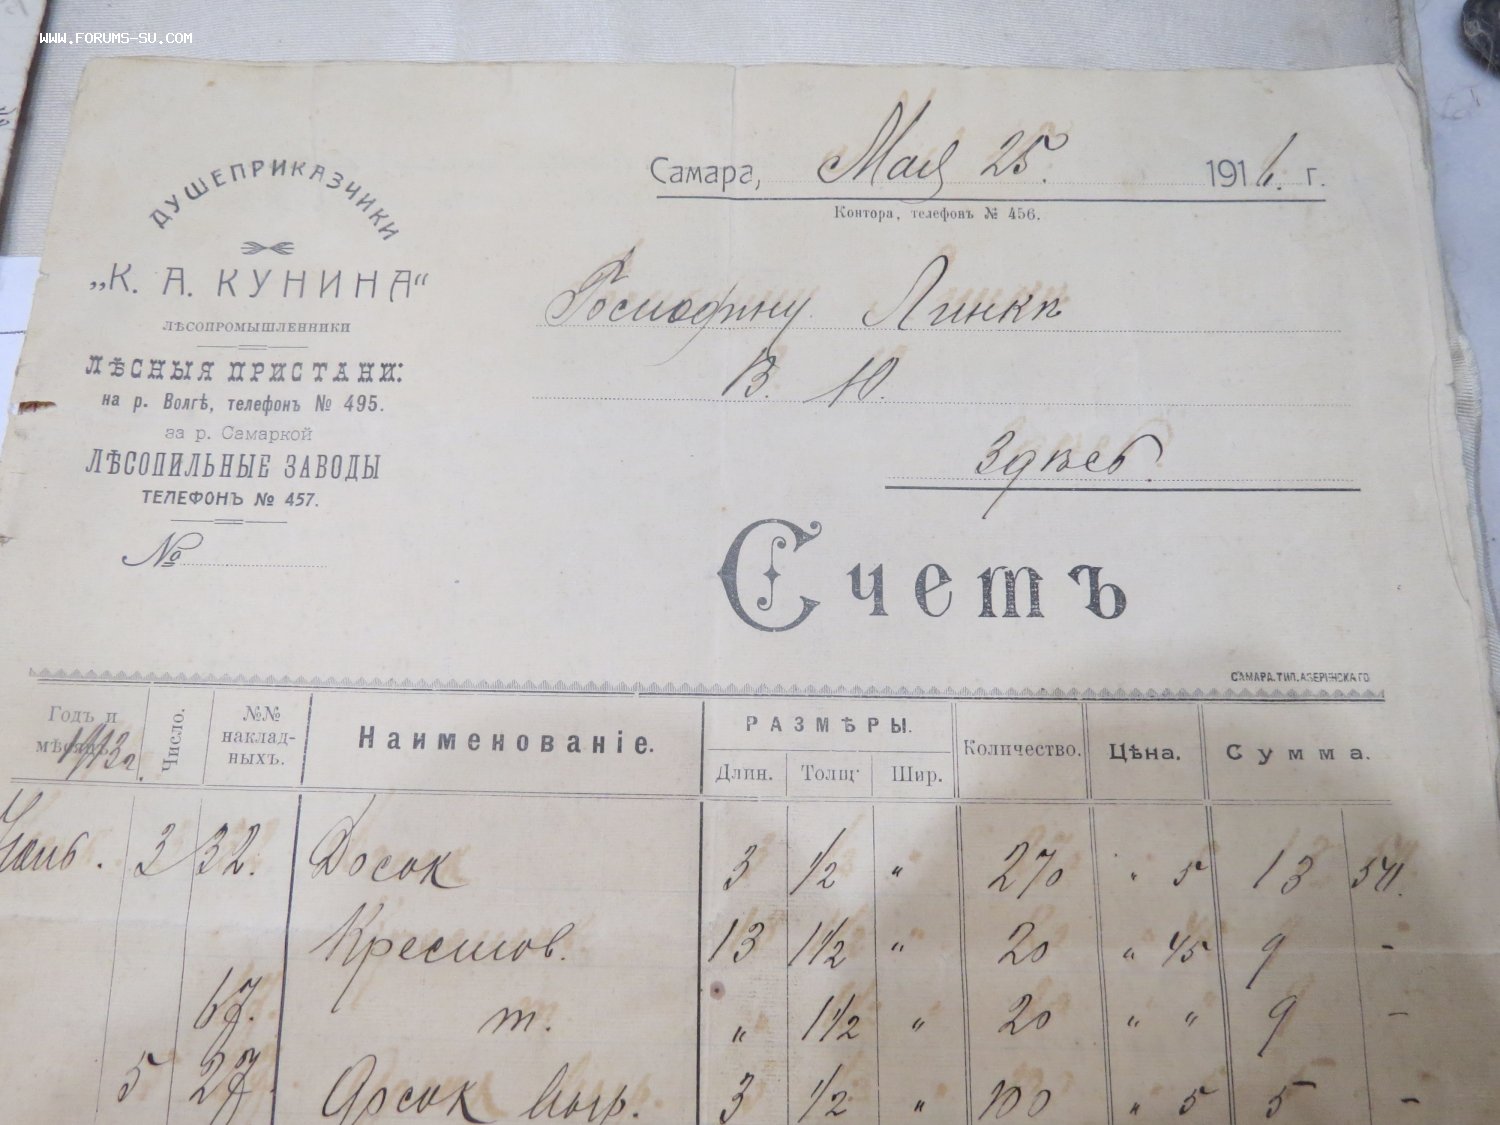 WWW.FORUMS-SU.COM
ДУШЕПРИКАЗЧИКИ
„К. А. КУНИНА“
ЛѢСОПРОМЫШЛЕННИКИ
ЛѢСНЫЯ ПРИСТАНИ:
на р. Волгѣ, телефонъ № 495.
за р. Самаркой
ЛѢСОПИЛЬНЫЕ ЗАВОДЫ
ТЕЛЕФОНЪ № 457.
№
Самара, Мая 25. 191 г.
Контора, телефонъ № 456.
Господину Линке
В. Ю.
Здѣсь.
Счетъ
САМАРА.ТИП.АЗЕРИНСКАГО
Годъ и мѣсяцъ. 1913 г. Число. №№ наклад-ныхъ. Наименованіе. РАЗМѢРЫ. Длин. Толщ. Шир. Количество. Цѣна. Сумма.
3 32. Досок 3 1/2 " 270 " 5 13 50.
13 1 1/2 " 20 " 45 9 -
67. т. " 1 1/2 " 20 " " 9 -
5 27. 3 1/2 " 100 " 5 5 -